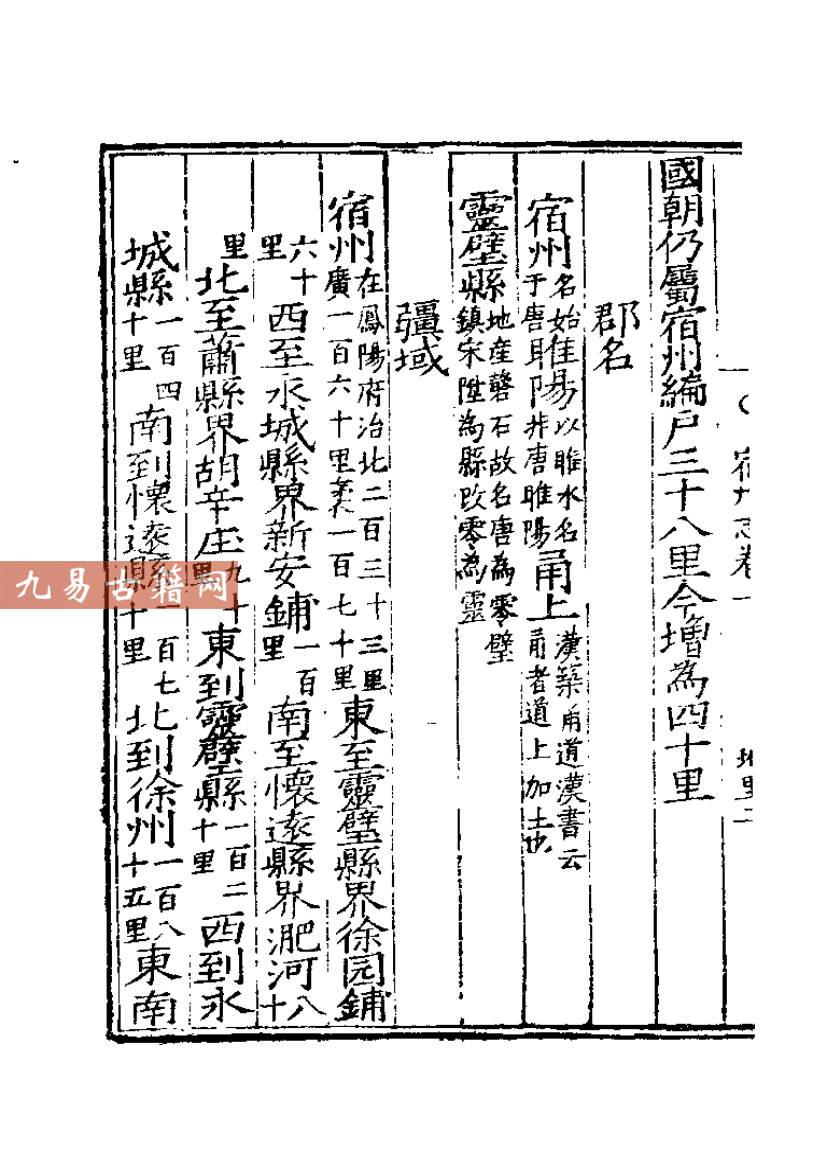 宿州志卷一
地里二
國朝仍屬宿州編戶三十八里今增為四十里
郡名
宿州名始于唐睢陽以睢水名即非唐睢陽甬上漢築甬道漢書云甬者道上加土也
靈壁縣地產磬石故名唐為零壁鎮宋陞為縣改零為靈
疆域
宿州在鳳陽府治北二百三十三里廣一百六十里袤一百七十里東至靈璧縣界徐园鋪
六十里西至永城縣界新安鋪一百里南至懷遠縣界淝河八十
里北至蕭縣界胡辛庄九十里東到靈壁縣一百二十里西到永
城縣一百四十里南到懷遠縣一百七十里北到徐州一百八十五里東南
九易古籍网